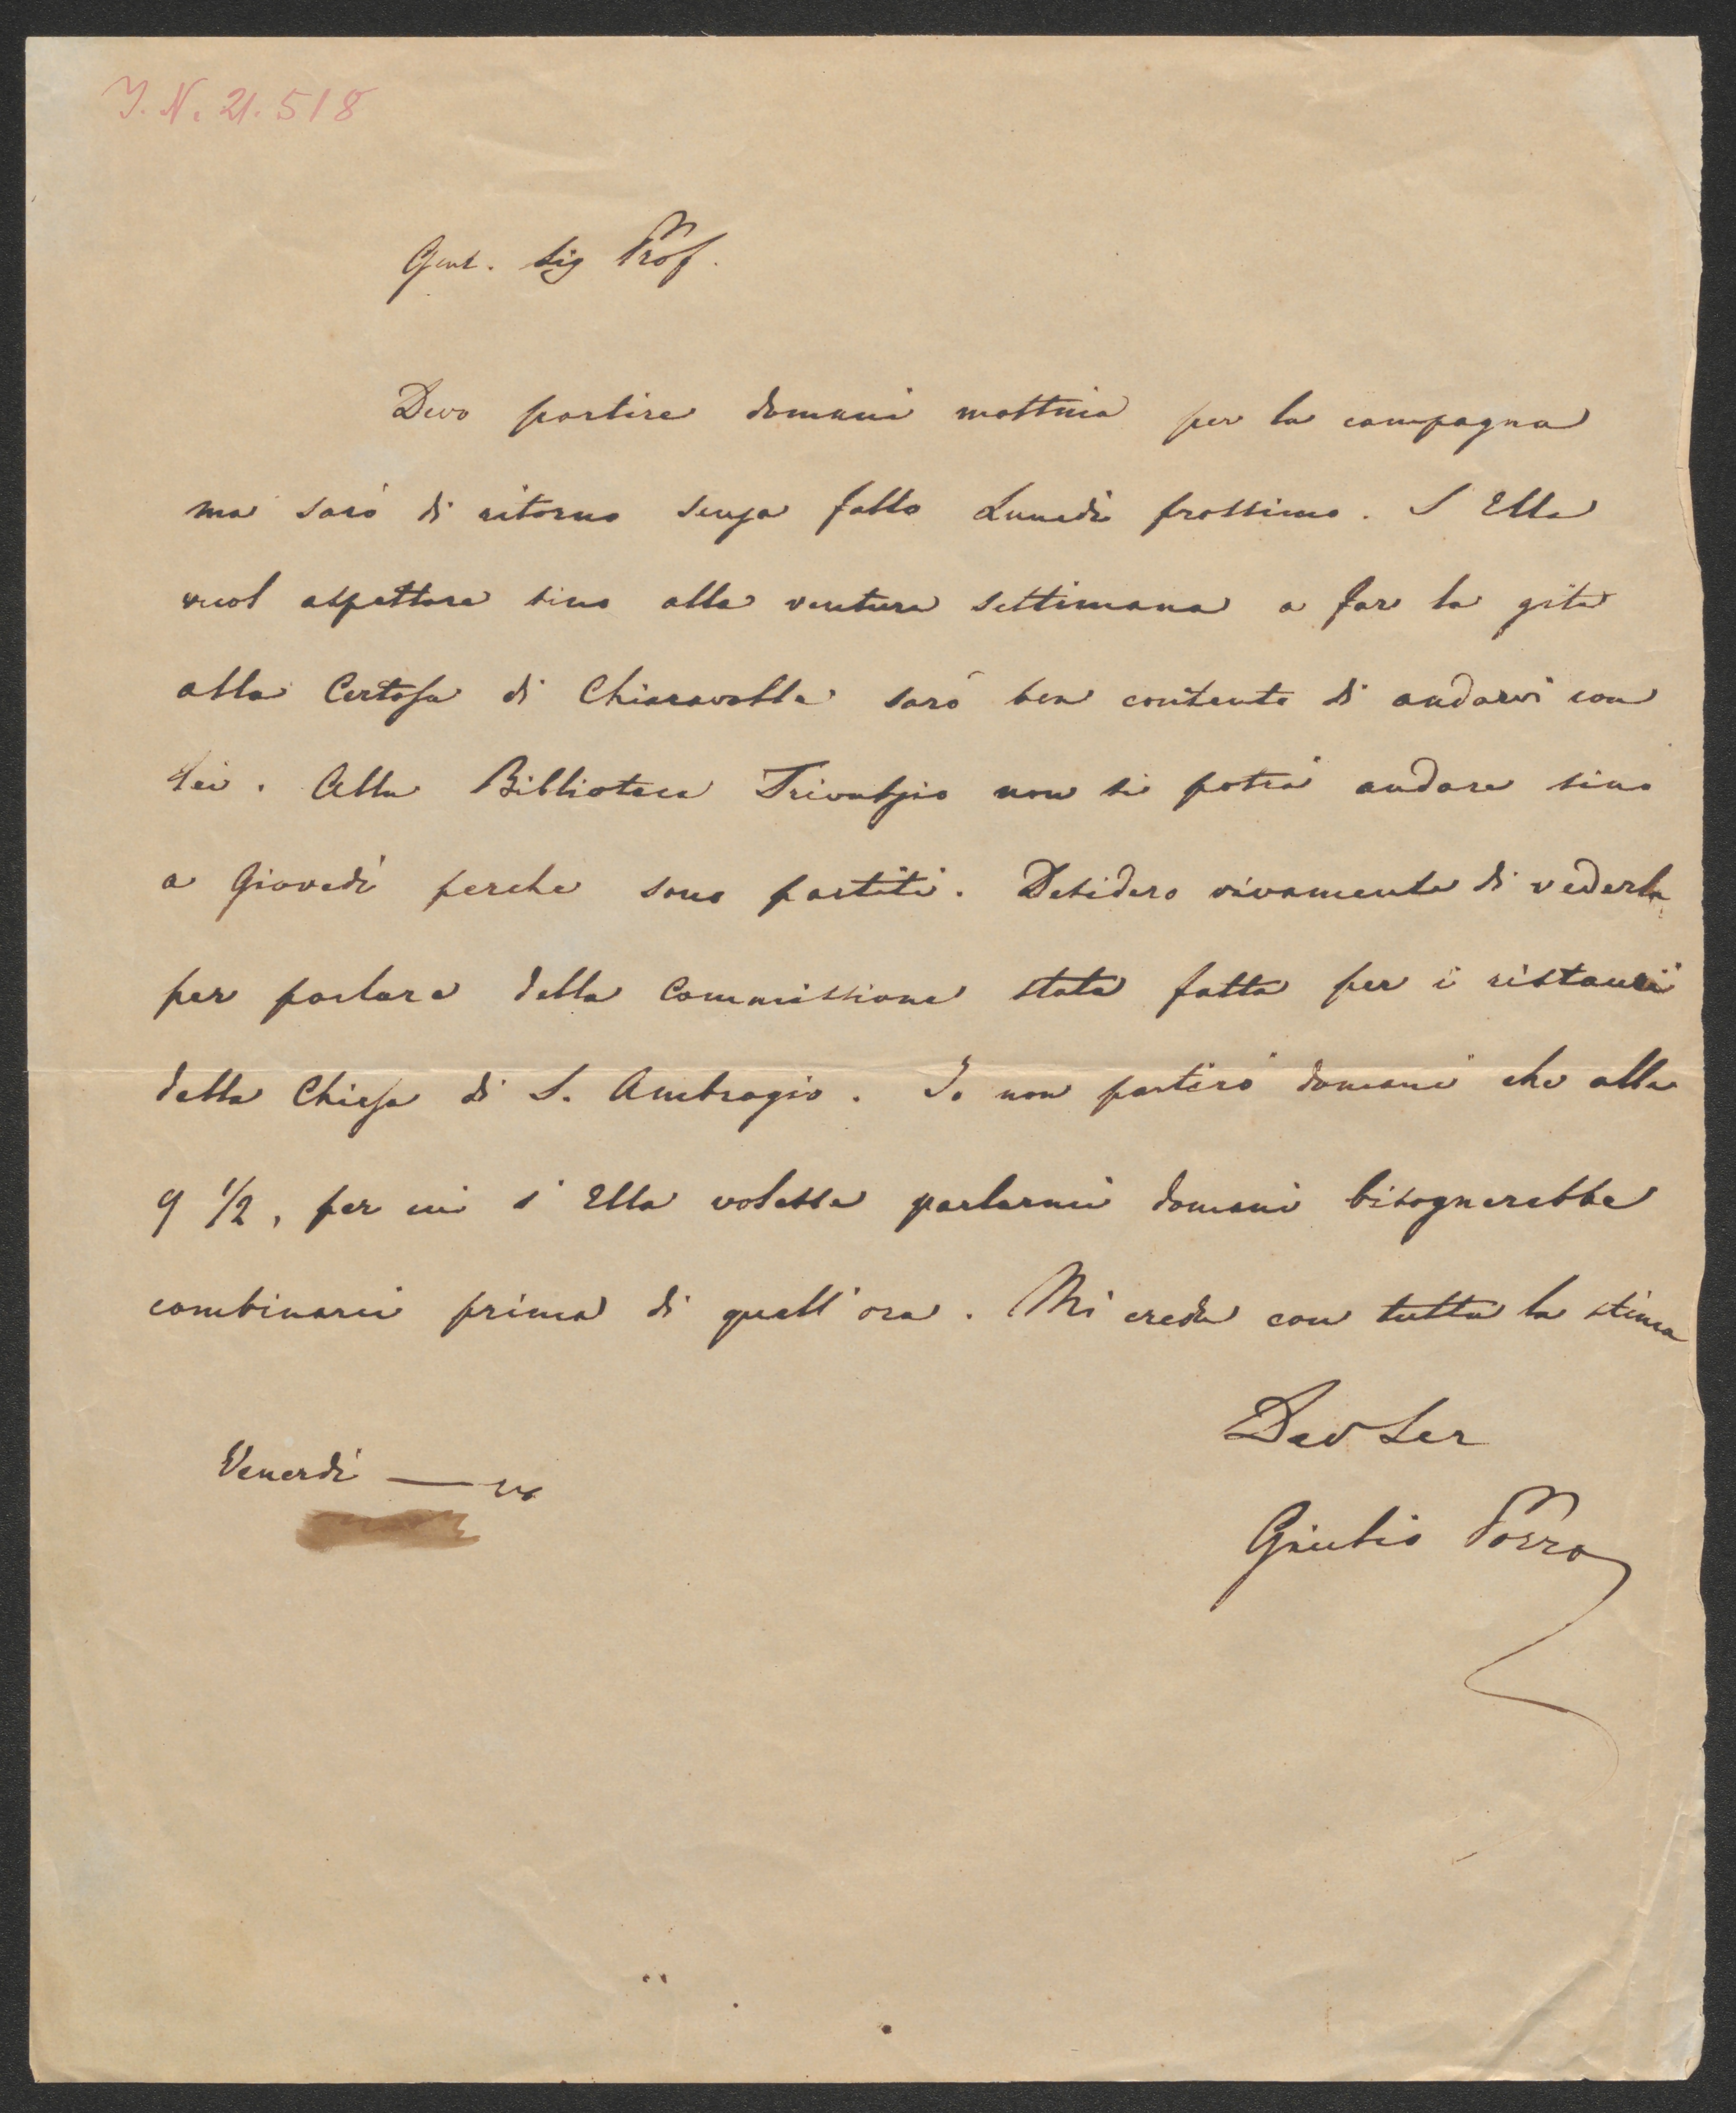 I. N. 21.518
Gent. Sig Prof.
Devo partire domani mattina per la campagna
ma sarò di ritorno senza fallo Lunedì prossimo. S Ella
vuol aspettare sino alla ventura settimana a far la gita
alla Certosa di Chiaravalle sarò ben contento di andarvi con
Lei. Alla Biblioteca Trivulzio non si potrà andare sino
a Giovedì perche sono partiti. Desidero vivamente di vederla
per parlare della Commissione stata fatta per i ristauri
della Chiesa di S. Ambrogio. Io non partirò domani che alle
9 1/2, per cui s'Ella volesse parlarmi domani bisognerebbe
combinarci prima di quell'ora. Mi creda con tutta la stima
Dev Ser
Venerdì —
Giulio Porro